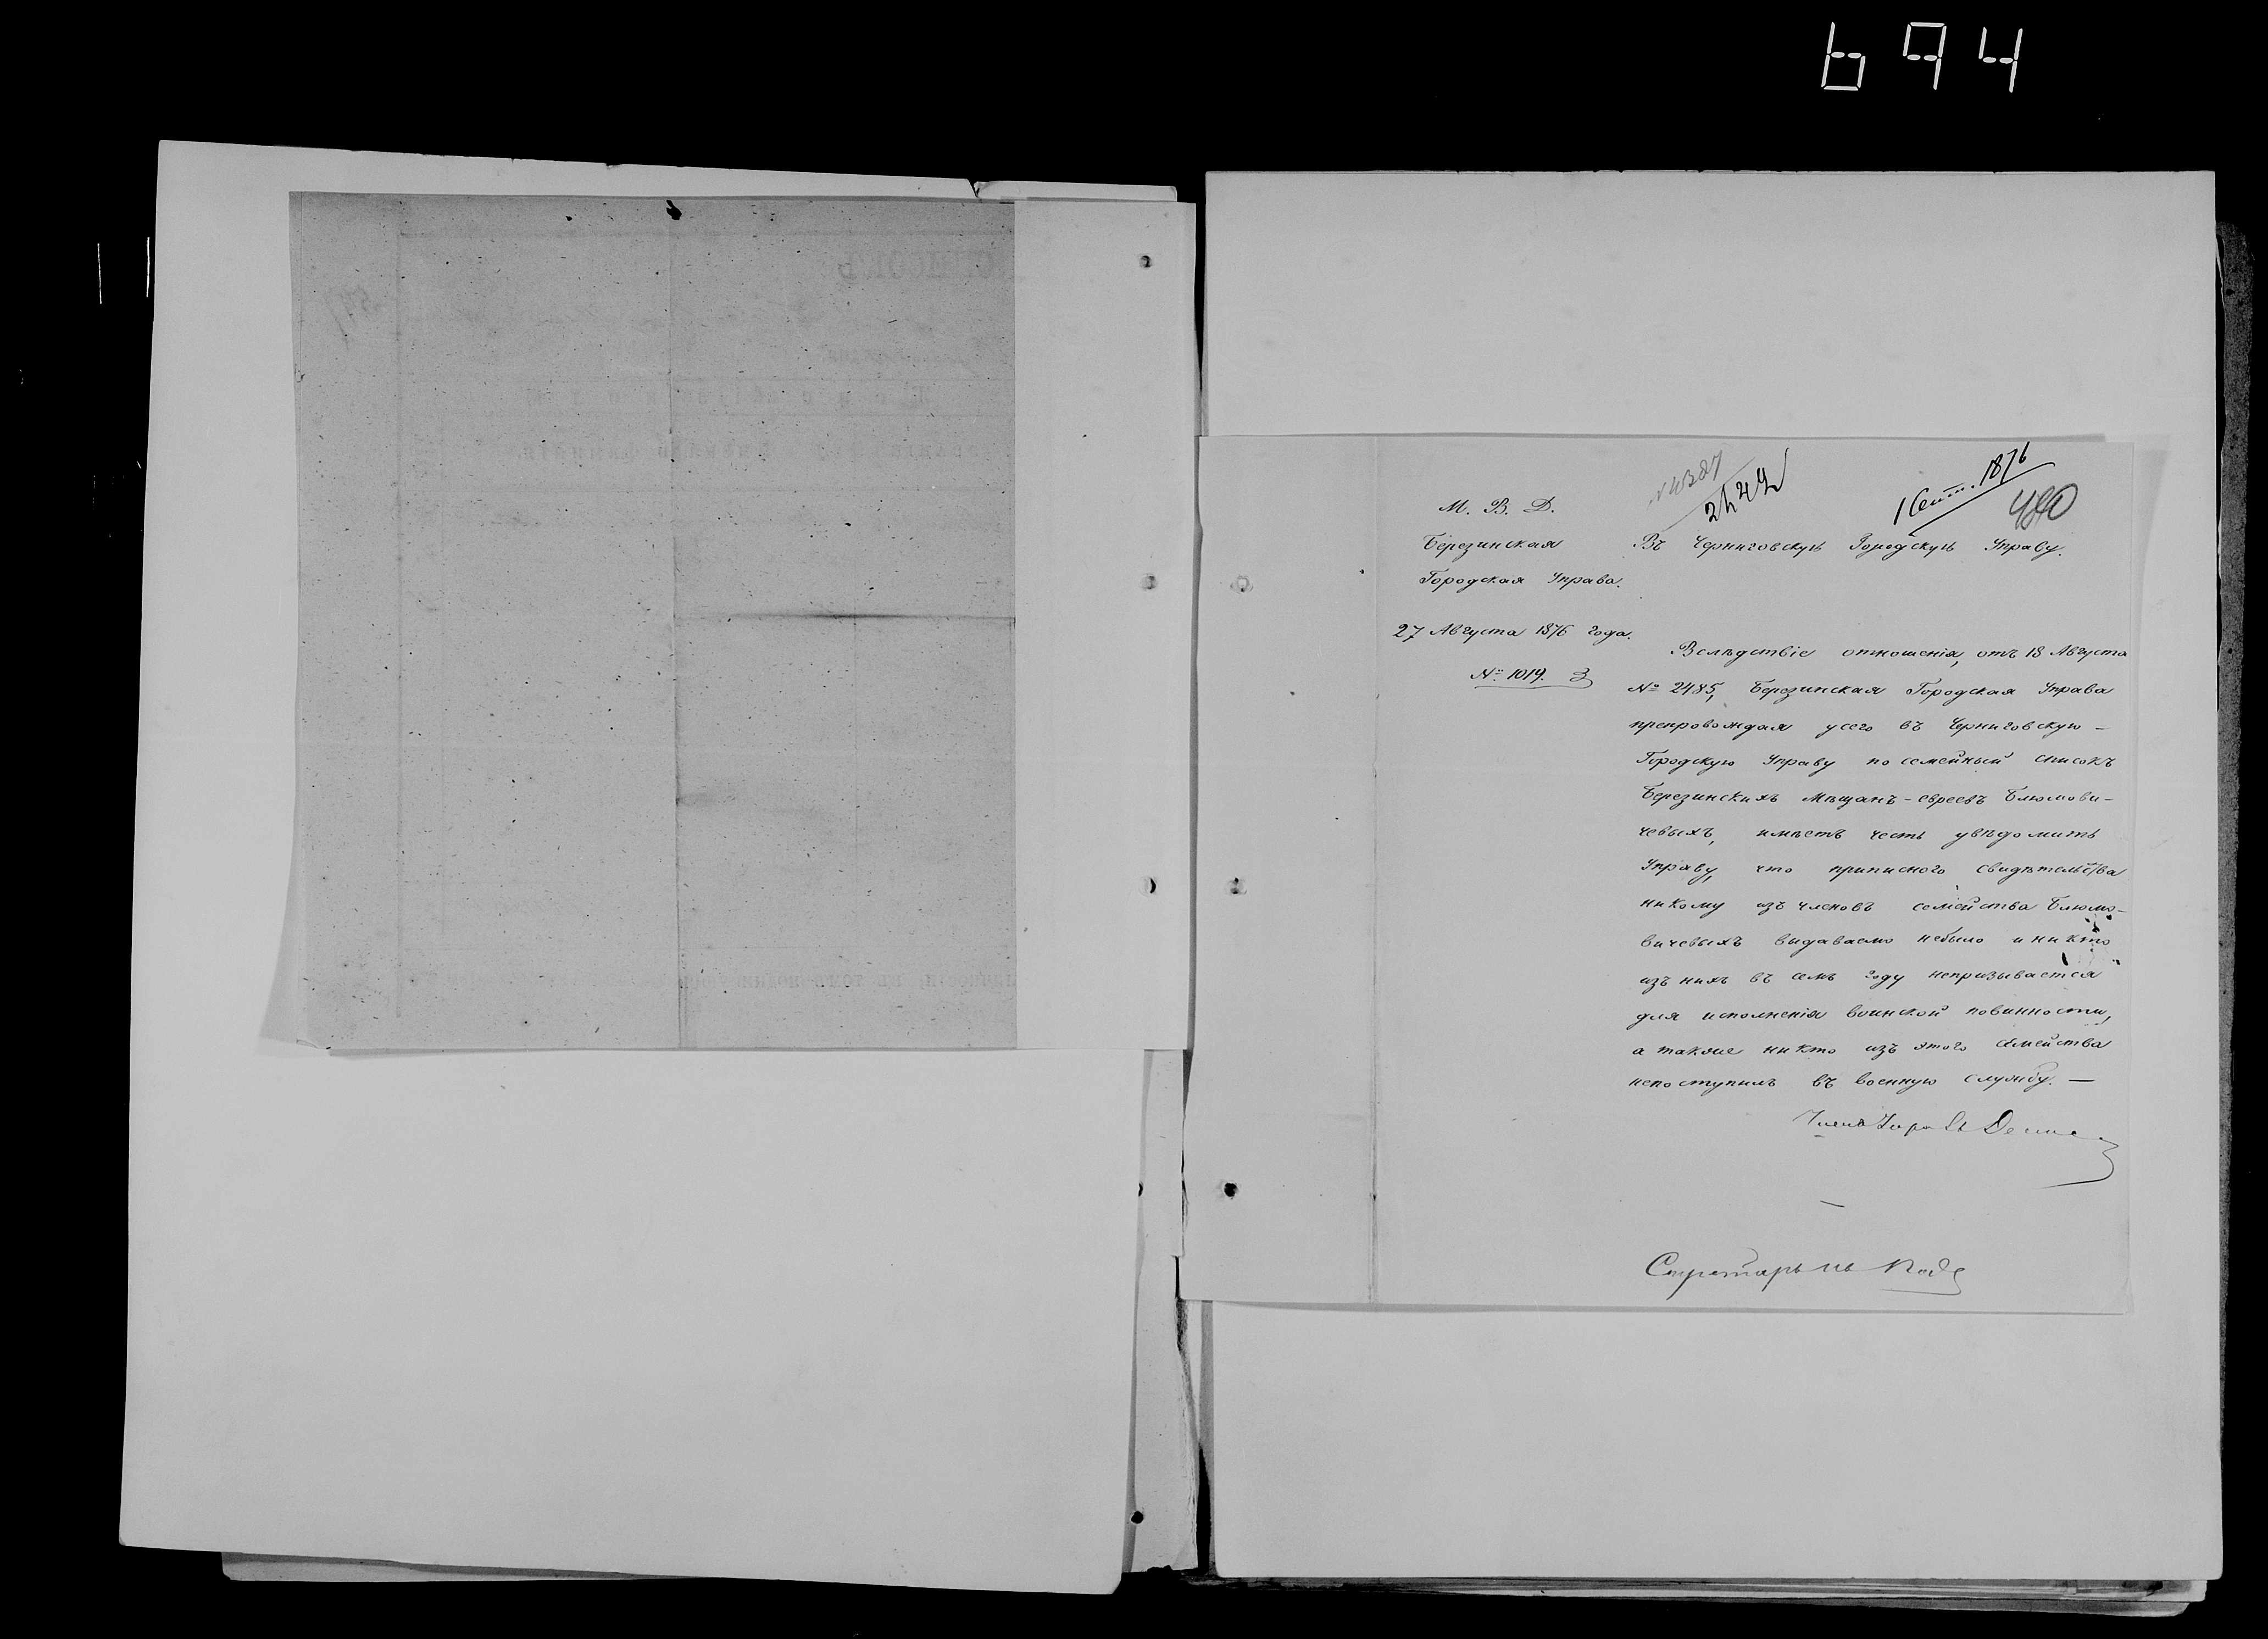 694
1 Сент. 1876
2449
480
М. В. Д.
Березинская
Городская Управа.
27 Августа 1876 года.
№ 1019.
Въ Черниговскую Городскую Управу.
Вслѣдствіе отношенія, отъ 18 Августа
№ 2485, Березинская Городская Управа
препровождая усего въ Черниговскую –
Городскую Управу посемейный списокъ
Березинскихъ Мѣщанъ-евреевъ Блюмови-
чевыхъ, имѣетъ честь увѣдомить
Управу, что приписного свидѣтельства
никому изъ членовъ семейства Блюмо-
вичевыхъ выдаваемо небыло и никто
изъ нихъ въ семъ году непризывается
для исполненія воинской повинности,
а также никто изъ этого семейства
непоступилъ въ военную службу. —
Членъ Управы
Секретарь
СПИСОКЪ